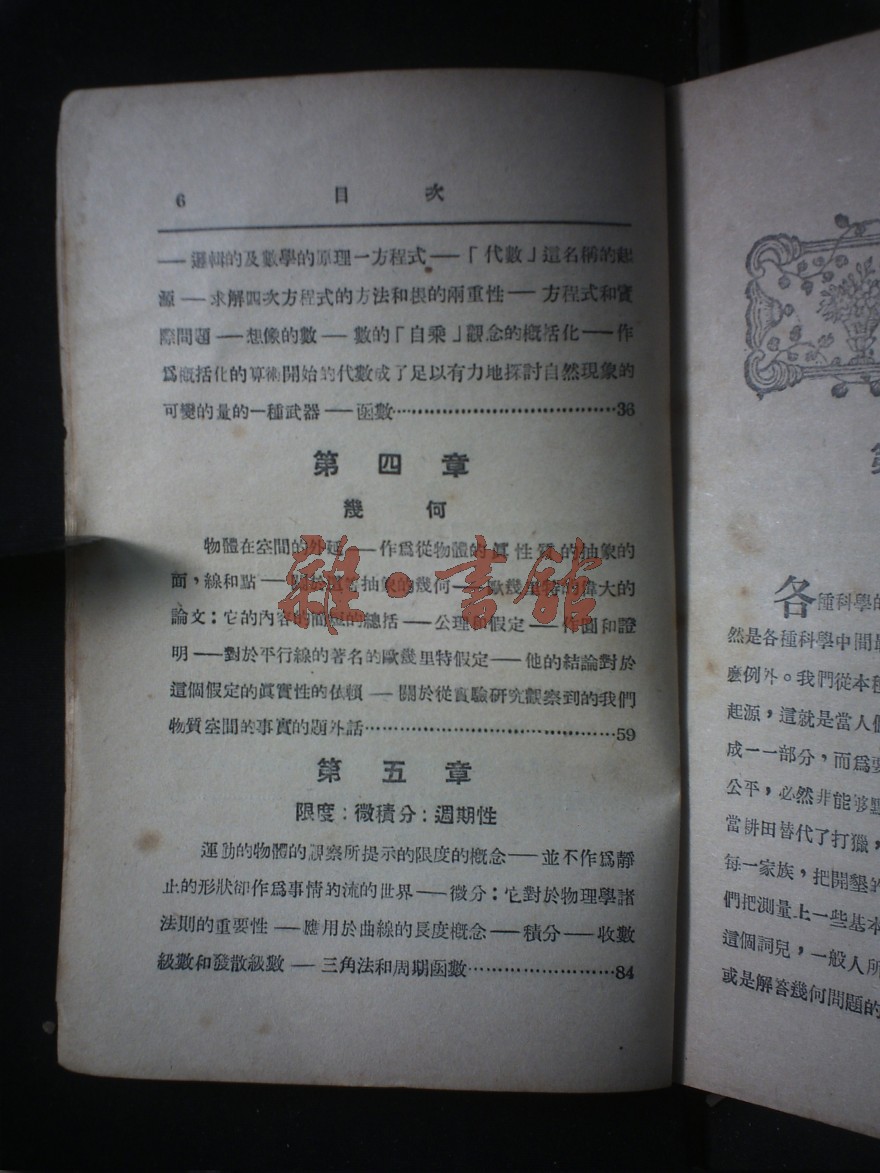 6 目 次
——邏輯的及數學的原理一方程式——「代數」這名稱的起
源——求解四次方程式的方法和根的兩重性——方程式和實
際問題——想像的數——數的「自乘」觀念的概括化——作
爲概括化的算術開始的代數成了足以有力地探討自然現象的
可變的量的一種武器——函數……………………………36
第 四 章
幾 何
物體在空間的外延——作爲從物體的眞性質的抽象的
面，線和點——關於這若抽象的幾何——歐幾里特的偉大的
論文：它的內容的簡短的總括——公理和假定——作圖和證
明——對於平行線的著名的歐幾里特假定——他的結論對於
這個假定的眞實性的依賴——關於從實驗研究觀察到的我們
物質空間的事實的題外話……………………………59
第 五 章
限度：微積分：週期性
運動的物體的觀察所提示的限度的概念——並不作爲靜
止的形狀卻作爲事情的流的世界——微分：它對於物理學諸
法則的重要性——應用於曲線的長度概念——積分——收斂
級數和發散級數——三角法和周期函數……………………84
雜·書館
各種科學的
然是各種科學中間最
麽例外。我們從本種
起源，這就是當人們
成一一部分，而爲要
公平，必然非能够
當耕田替代了打獵，
每一家族，把開墾的
們把測量上一些基本
這個詞兒，一般人所
或是解答幾何問題的